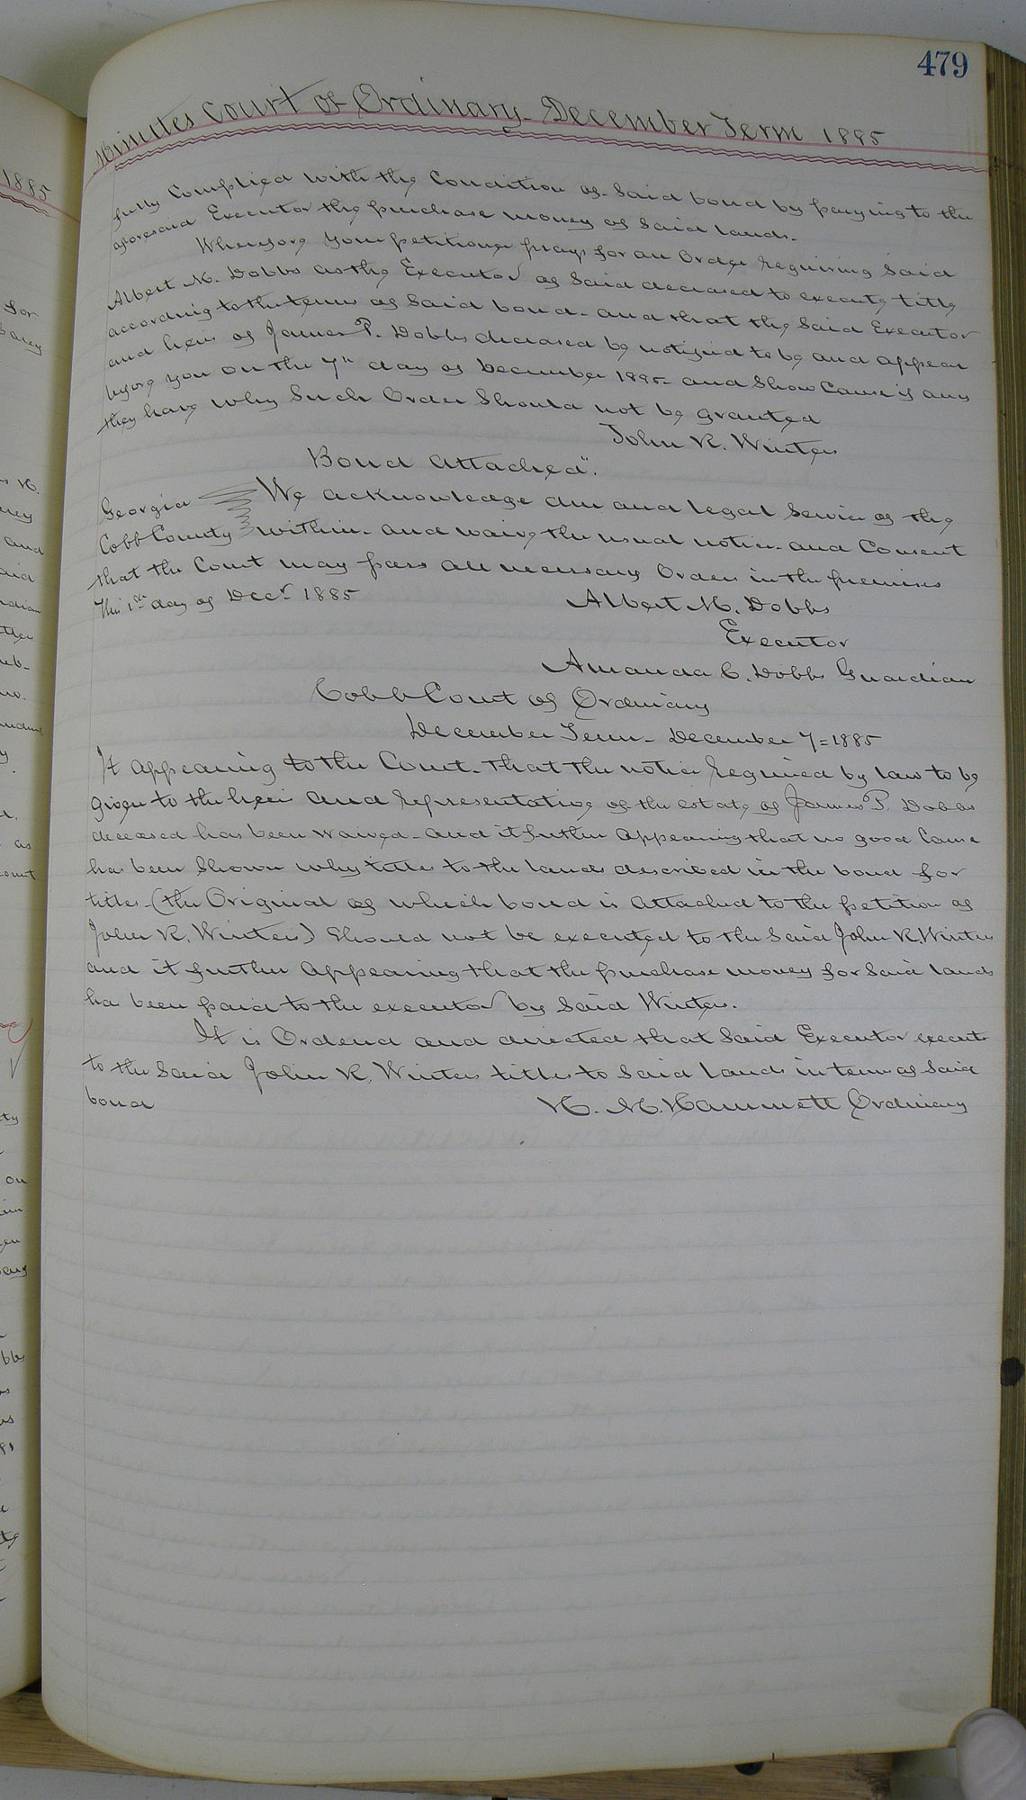 479
Minutes Court of Ordinary - December Term 1885
fully complied with the Condition of Said bond by paying to the
aforesaid Executor the purchase money of Said lands.
Wherefore your petitioner prays for an Order requiring Said
Albert M. Dobbs as the Executor of Said deceased to execute title
according to the terms of Said bond - and that the Said Executor
and heirs of James P. Dobbs deceased be notified to be and appear
before you on the 7th day of December 1885 and Show Cause if any
they have why Such Order Should not be granted
John R. Winters
Bond Attached".
Georgia We acknowledge due and legal Service of the
Cobb County within - and waive the usual notice - and Consent
that the Court may pass all necessary Orders in the premises
This 1st day of Decr 1885 Albert M. Dobbs
Executor
Amanda C. Dobbs Guardian
Cobb Court of Ordinary
December Term - December 7 = 1885
It appearing to the Court - that the notice required by law to be
given to the heirs and representative of the estate of James P. Dobbs
deceased has been waived - and it further appearing that no good Cause
has been Shown why titles to the lands described in the bond for
titles (the Original of which bond is attached to the petition of
John R. Winters) Should not be executed to the Said John R. Winters
and it further appearing that the purchase money for Said lands
ha been paid to the executor by Said Winters.
It is Ordered and directed that Said Executor execute
to the Said John R. Winters titles to Said lands in terms of Said
bond H. M. Hammett Ordinary
1885